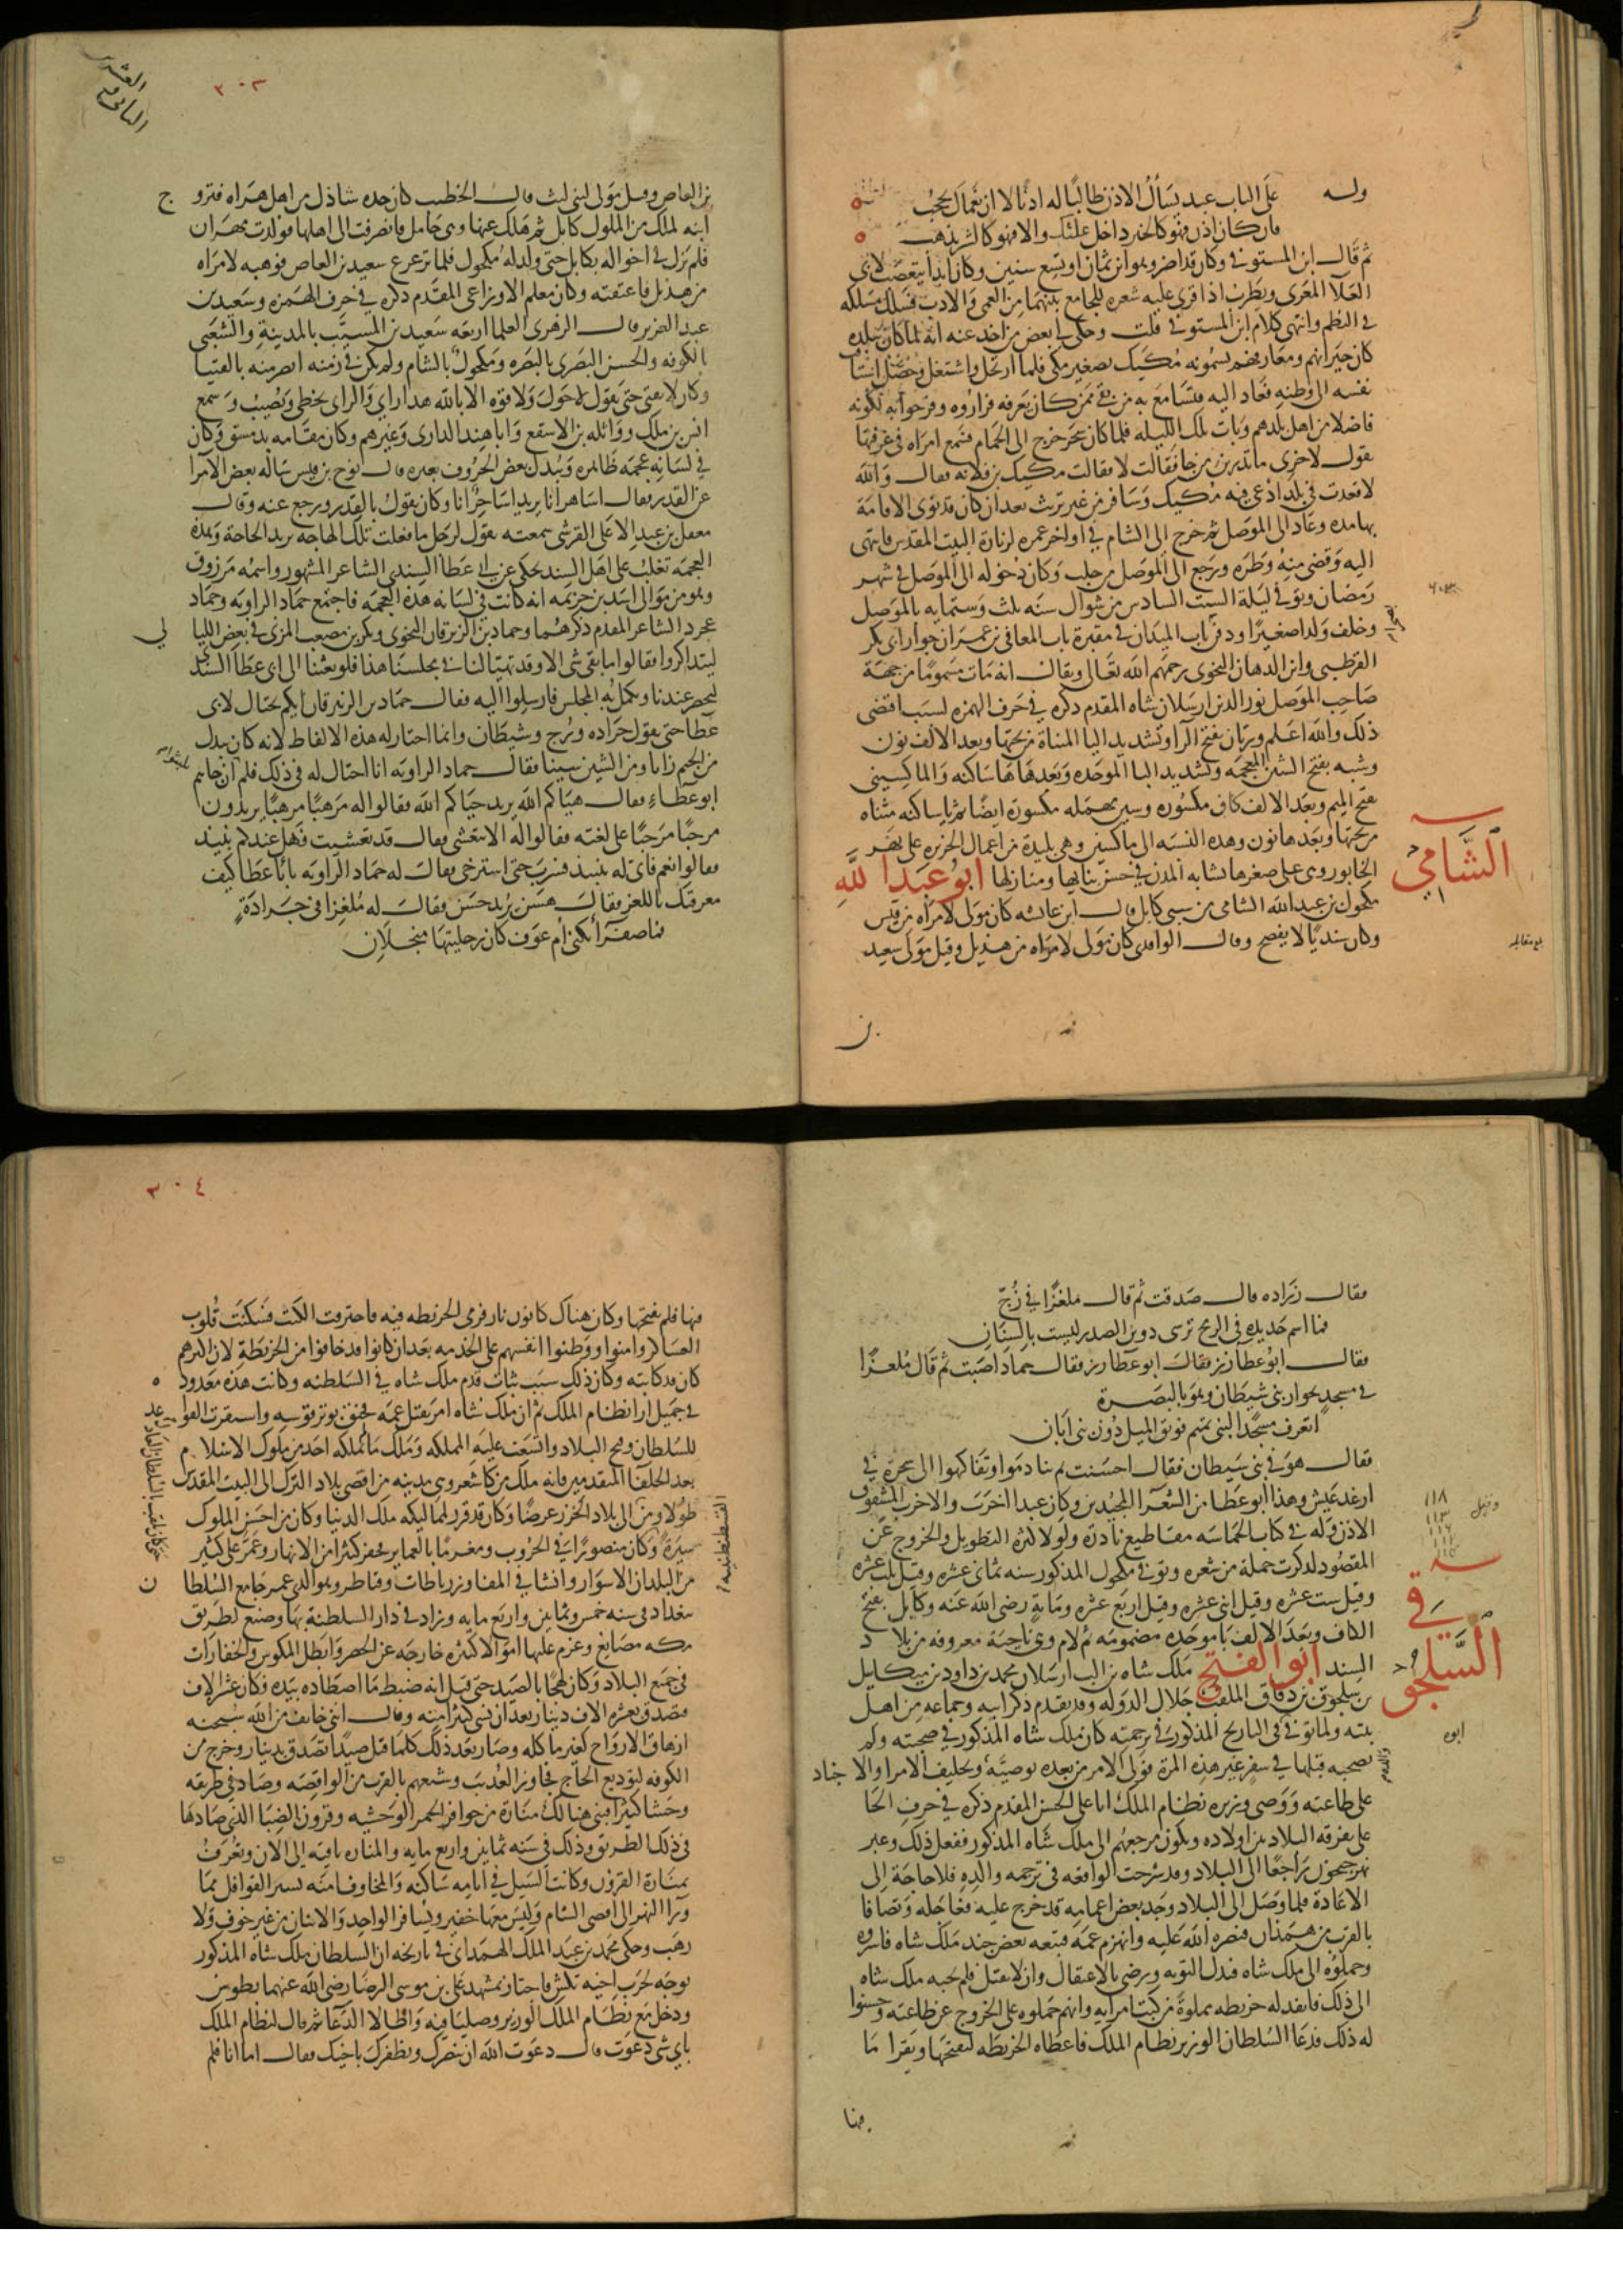 وله على الباب عبد يسأل الاذن طالبا له ادنا لا ان نعماك تحجب
فان كان اذن فهو كالخير داخل عليك والا فهو كالشر يذهب
ثم قال ابن المستوفى وكان قد اضر وهو ابن ثمان او تسع سنين وكان ابدا يتعصب لابى
العلآ المعرى ويطرب اذا قرى عليه شعره للجامع بينهما من العمى والادب فسلك مسلكه
فى النظم وانتهى كلام ابن المستوفى قلت وحكى لى بعض من اخذ عنه انه لما كان ببلده
كان جيرانهم ومعارفهم يسمونه مكيك تصغير مكى فلما ارتحل واشتغل وحصل اشتاقت
نفسه الى وطنه فعاد اليه فتسامع به من بقى ممن كان يعرفه فزاروه وفرحوا به لكونه
فاضلا من اهل بلدهم وبات تلك الليله فلما كان سحر خرج الى الحمام فسمع امراه فى غرفتها
تقول لاخرى ما تدرين من جا فقالت لا فقالت مكيك بن فلانه فقال والله
لا قعدت فى بلد ادعى فيه مكيك وسافر من غير تريث بعد ان كان قد نوى الاقامة
بها مده وعاد الى الموصل ثم خرج الى الشام فى اواخر عمره لزيارة البيت المقدس فانتهى
اليه وقضى منه وطره ورجع الى الموصل من حلب وكان دخوله الى الموصل فى شهر
رمضان وتوفى ليلة السبت السادس من شوال سنه ثلث وستمايه بالموصل
وخلف ولدا صغيرا ودفن باب الميدان فى مقبرة باب المعافى بن عمران جوار ابى بكر
القرطبى وابن الدهان النحوى رحمهم الله تعالى ويقال انه مات مسموما من جهة
صاحب الموصل نور الدين ارسلان شاه المقدم ذكره فى حرف الهمزه لسبب اقتضى
ذلك والله اعلم وريان بفتح الرآ وتشديد اليا المثناة من تحتها وبعد الالف نون
وشبه بفتح الشين المعجمه وتشديد البا الموحده وبعدها ها ساكنه والماكسينى
بفتح الميم وبعد الالف كاف مكسوره وسين مهمله مكسورة ايضا ثم يا ساكنه مثناه
من تحتها وبعدها نون وهذه النسبه الى ماكسين وهى بليدة من اعمال الجزيره على نهر
الخابور وهى على صغرها تشابه المدن فى حسن بنائها ومنازلها ابو عبد الله
الشامي
مكحول بن عبد الله الشامى من سبى كابل قال ابن عائشه كان مولى لامراه من قيس
وكان سنديا لا يفصح وقال الواقدى كان مولى لامراه من هذيل وقيل مولى سعيد
٣٠٣
بن العاص وقيل مولى لبنى ليث قال الخطيب كان جده شاذل من اهل هراه فتزوج
ابنه لملك من الملوك كابل ثم هلك عنها وهى حامل فانصرفت الى اهلها فولدت شهران
فلم يزل فى اخواله بكابل حتى ولد له مكحول فلما ترعرع سعيد بن العاص فوهبه لامراه
من هذيل فاعتقته وكان معلم الاوزاعى المقدم ذكره فى حرف الهمزه وسعيد بن
عبد العزيز قال الزهرى العلما اربعه سعيد بن المسيب بالمدينة والشعبى
بالكوفه والحسن البصرى بالبصره ومكحول بالشام ولم يكن فى زمنه ابصر منه بالفتيا
وكان لا يفتى حتى يقول لا حول ولا قوه الا بالله هدا راى والراى يخطى ويصيب وسمع
انس بن ملك وواثله بن الاسقع وابا هند الدارى وغيرهم وكان مقامه بدمشق وكان
فى لسانه عجمه ظاهره ويبدل بعض الحروف بغيره قال نوح بن قيس ساله بعض الامرا
عن القدر فقال اساهر انا يريد اساحر انا وكان يقول بالقدر ورجع عنه وقال
معقل بن عبد الاعلى القرشى سمعته يقول لرجل ما فعلت تلك الهاجه يريد الحاجة وهذه
العجمه تغلب على اهل السند حكى عن ابى عطا السندى الشاعر المشهور واسمه مرزوق
وهو من موالى اسد بن خزيمه انه كانت فى لسانه هذه العجمه فاجتمع حماد الراويه وحماد
عجرد الشاعر المقدم ذكرهما وحماد بن الزبرقان النحوى وبكر بن مصعب المزنى فى بعض الليالي
ليتذاكروا فقالوا ما بقى شى الا وقد تهيا لنا فى مجلسنا هذا فلو بعثنا الى ابى عطا السندى
ليحضر عندنا ويكمل به المجلس فارسلوا اليه فقال حماد بن الزبرقان ايكم يحتال لابى
عطا حتى يقول جراده وزج وشيطان وانما اختار له هذه الالفاظ لانه كان يبدل
من الجيم زايا ومن الشين سينا فقال حماد الراويه انا احتال له فى ذلك فلم ان جاهم
ابو عطاء فقال هياكم الله يريد حياكم الله فقالوا له مرهبا مرهبا يريدون
مرحبا مرحبا على لغته فقالوا له الا تتعشى فقال قد تعشيت فهل عندكم نبيذ
فقالوا نعم فاتى له بنبيذ فشرب حتى استرخى فقال له حماد الراويه يا ابا عطا كيف
معرفتك باللغز فقال هسن يريد حسن فقال له ملغزا فى جرادة
فما صفرآ تكنى ام عوف كان رجليتها منجلان
فقال زراده قال صدقت ثم قال ملغزا فى زج
فما اسم حديدة فى الرمح ترسى دوين الصدر ليست بالسنان
فقال ابو عطا زز فقال حماد اصبت ثم قال ملغزا
فى مسجد بجوار بنى شيطان وهو بالبصرة
اتعرف مسجدا لبنى تميم فويق الميل دون بنى ابان
فقال هو فى بنى سيطان فقال احسنت ثم تنادموا وتفاكهوا الى سحرة فى
ارغد عيش وهذا ابو عطا من الشعرآ المجيدين وكان عبدا اخرب والاخرب المشقوق
الاذن وله فى كتاب الحماسه مقاطيع نادرة ولولا كثرة التطويل والخروج عن
المقصود لذكرت جملة من شعره وتوفى مكحول المذكور سنه ثمانى عشره وقيل ثلث عشره
وقيل ست عشره وقيل اثنى عشره وقيل اربع عشره ومايه رضى الله عنه وكابل بفتح
الكاف وبعد الالف با موحده مضمومه ثم لام وهى ناحية معروفه من بلاد
السند ابو الفتح ملك شاه بن الب ارسلان محمد بن داود بن ميكايل
السلجوقي
بن سلجوق بن دقاق الملقب جلال الدوله وقد تقدم ذكر ابيه وجماعه من اهل
بيته ولما توفى فى التاريخ المذكور فى ترجمته كان ملك شاه المذكور فى صحبته ولم
يصحبه قبلها فى سفر غير هذه المرة فولى الامر من بعده بوصية وتحليف الامرا والاجناد
على طاعته ووصى وزيره نظام الملك ابا على الحسن المقدم ذكره فى حرف الحا
على تفرقه البلاد بين اولاده ويكون مرجعهم الى ملك شاه المذكور ففعل ذلك وعبر
نهر جيحون راجعا الى البلاد وقد شرحت الواقعه فى ترجمه والده فلا حاجة الى
الاعادة فلما وصل الى البلاد وجد بعض اعمامه قد خرج عليه فعاجله وتصافا
بالقرب من همذان فنصره الله عليه وانهزم عمه فتبعه بعض جند ملك شاه فاسروه
وحملوه الى ملك شاه فبذل التوبه ورضى بالاعتقال وان لا يقتل فلم يجبه ملك شاه
الى ذلك فانفذ له خريطه مملوة من كتب امرايه وانهم حملوه على الخروج عن طاعته وحسنوا
له ذلك فدعا السلطان الوزير نظام الملك فاعطاه الخريطه ليفتحها ويقرا ما
فيها
٣٠٤
فيها فلم يفتحها وكان هناك كانون نار فرمى الخريطه فيه فاحترقت الكتب فسكنت قلوب
العساكر وامنوا ووطنوا انفسهم على الخدمه بعد ان كانوا قد خافوا من الخريطة لان اكثرهم
كان قد كاتبه وكان ذلك سبب ثبات قدم ملك شاه فى السلطنه وكانت هذه معدوده
فى جميل ارا نظام الملك ثم ان ملك شاه امر بقتل عمه فخنق بوتر قوسه واستقرت القواعد
للسلطان وفتح البلاد واتسعت عليه المملكه وملك ما لم يملكه احد من ملوك الاسلام
بعد الخلفآ المتقدمين فانه ملك من كاشغر وهى مدينه من اقصى بلاد الترك الى البيت المقدس
طولا ومن الى بلاد الخزر عرضا وكان قد قرر لممالكه ملك الدنيا وكان من احسن الملوك
القسطنطينيه
سيرة وكان منصورا فى الحروب ومغرما بالعماير فحفر كثيرا من الانهار وعمر على كثير
من البلدان الاسوار وانشا فى المفاوز رباطات وقناطر وهو الذى عمر جامع السلطان
ببغداد فى سنه خمس وثمانين واربع مايه وزاد فى دار السلطنة بها وصنع لطريق
مكه مصانع وغرم عليها اموالا كثيره خارجه عن الحصر وابطل المكوس والخفارات
فى جميع البلاد وكان لهجا بالصيد حتى قيل انه ضبط ما اصطاده بيده فكان عشرة الاف
فتصدق بعشره الاف دينار بعد ان نسى كثيرا منه وقال اننى خايف من الله سبحنه
ازهاق الارواح لغير ماكله وصار بعد ذلك كلما قتل صيدا تصدق بدينار وخرج من
الكوفه لتوديع الحاج فجاوز العذيب وشيعهم بالقرب من الواقصه وصاد فى طريقه
وحشا كثيرا فبنى هنالك منارة من حوافر الحمر الوحشيه وقرون الضبا الذى صادها
فى ذلك الطريق وذلك فى سنه ثمانين واربع مايه والمناره باقيه الى الان وتعرف
بمنارة القرون وكانت السبل فى ايامه ساكنه والمخاوف امنه تسير القوافل مما
ورآ النهر الى اقصى الشام وليس معها خفير ويسافر الواحد والاثنان من غير خوف ولا
رهب وحكى محمد بن عبد الملك الهمدانى فى تاريخه ان السلطان ملك شاه المذكور
توجه لحرب اخيه تكش فاجتاز بمشهد على بن موسى الرضا رضى الله عنهما بطوس
ودخل مع نظام الملك الوزير وصليا فيه واطالا الدعا ثم قال لنظام الملك
باى شى دعوت قال دعوت الله ان ينصرك ويظفرك باخيك فقال اما انا فلم